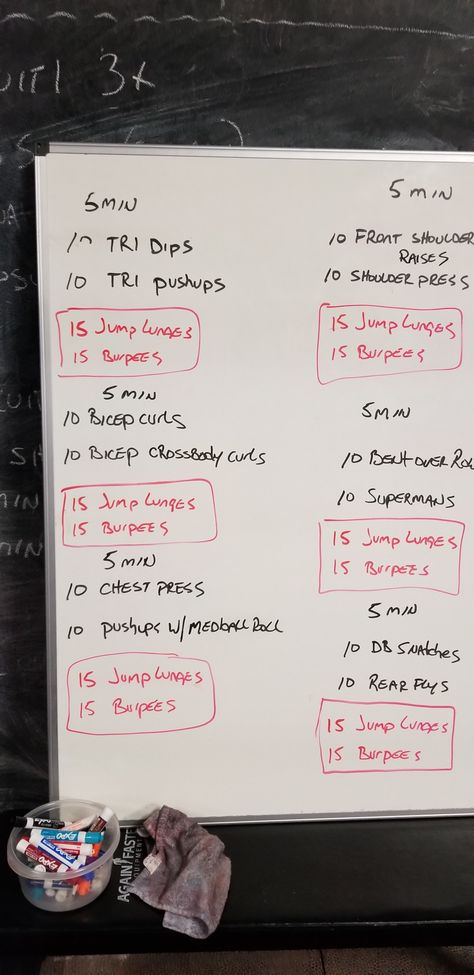 3x
5 MIN
10 TRI DIPS
10 TRI PUSHUPS
15 JUMP LUNGES
15 BURPEES
5 MIN
10 BICEP CURLS
10 BICEP CROSSBODY CURLS
15 JUMP LUNGES
15 BURPEES
5 MIN
10 CHEST PRESS
10 PUSHUPS W/MEDBALL ROLL
15 JUMP LUNGES
15 BURPEES
5 MIN
10 FRONT SHOULDER
RAISES
10 SHOULDER PRESS
15 JUMP LUNGES
15 BURPEES
5 MIN
10 BENT OVER RO
10 SUPERMANS
15 JUMP LUNGES
15 BURPEES
5 MIN
10 DB SNATCHES
10 REAR FLYS
15 JUMP LUNGES
15 BURPEES
EXPO
AGAIN FASTE
EQUIPMENT